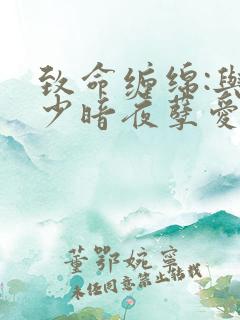 致命缠绵:与
少暗夜孽爱
董鄂婉宁
未经同意禁止转载